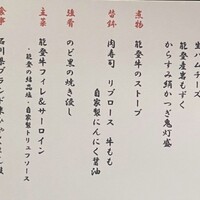 生ハムチーズ
能登産岩もずく
からすみ絹かつぎ鬼灯盛
煮物
能登牛のストーブ
替鉢
肉寿司 リブロース 牛もも
自家製にんにく醤油
強肴
のど黒の焼き浸し
主菜
能登牛フィレ&サーロイン
・能登の結晶塩・自家製トリュフソース
食事
石川県ブランド米ひゃくまん穀